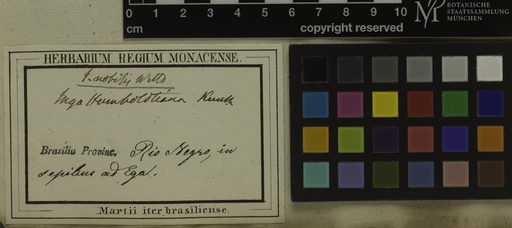 0 1 2 3 4 5 6 7 8 9 10
cm
copyright reserved
BOTANISCHE
STAATSSAMMLUNG
MÜNCHEN
HERBARIUM REGIUM MONACENSE.
I. nobilis Willd
Inga Humboldtiana Kunth
Brasilia Provinc. Rio Negro, in
sepibus ad Ega.
Martii iter brasiliense.